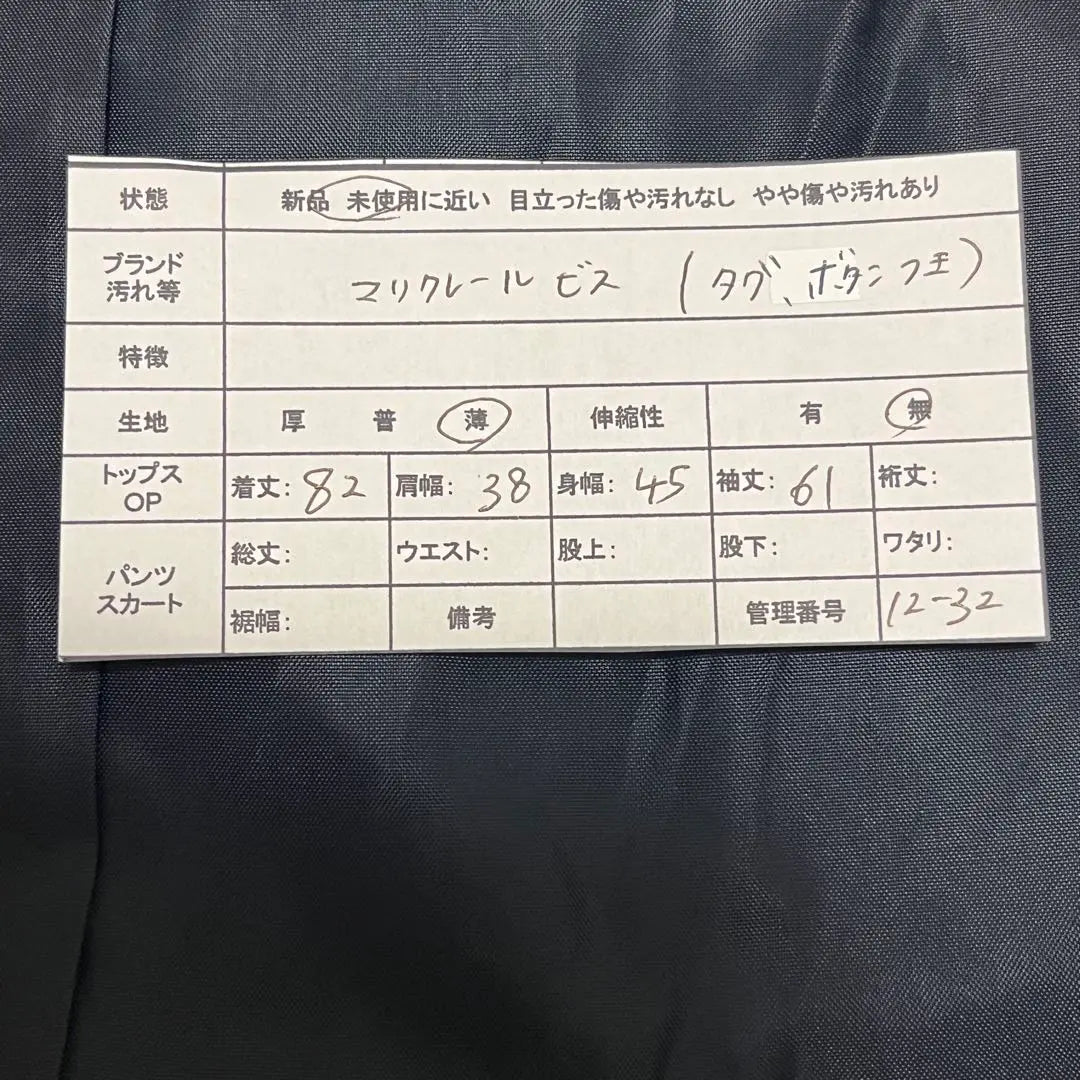 状態 新品 未使用に近い 目立った傷や汚れなし やや傷や汚れあり
ブランド
汚れ等 マリクレール ビス (タグ、ボタンフ王)
特徴
生地 厚 普 薄 伸縮性 有 無
トップス
OP 着丈: 82 肩幅: 38 身幅: 45 袖丈: 61 裄丈:
パンツ
スカート 総丈: ウエスト: 股上: 股下: ワタリ:
裾幅: 備考 管理番号 12-32